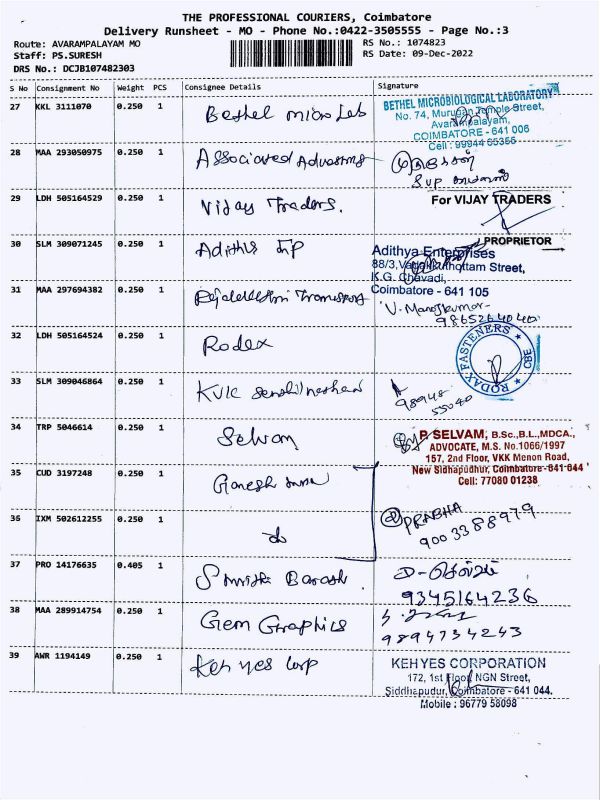 THE PROFESSIONAL COURIERS, Coimbatore
Delivery Runsheet - MO - Phone No.:0422-3505555 - Page No.:3
Route: AVARAMPALAYAM MO RS No.: 1074823
Staff: PS.SURESH RS Date: 09-Dec-2022
DRS No.: DCJB107482303
S No Consignment No Weight PCS Consignee Details Signature
27 KKL 3111070 0.250 1 Bethel micro Lab
BETHEL MICROBIOLOGICAL LABORATORY
No. 74, Murugan Temple Street,
Avarampalayam,
COIMBATORE - 641 006
Cell : 99944 65356
28 MAA 293050975 0.250 1 Associated
29 LDH 505164529 0.250 1 Vijay Traders.
For VIJAY TRADERS
PROPRIETOR
30 SLM 309071245 0.250 1
Adithya Enterprises
88/3, Street,
K.G. Chavadi,
Coimbatore - 641 105
31 MAA 297694382 0.250 1
V. Manojkumar
32 LDH 505164524 0.250 1 Rodex
RODAX FASTENERS CBE
33 SLM 309046864 0.250 1 KVIC
98948
55040
34 TRP 5046614 0.250 1 Selvam
P. SELVAM, B.Sc.,B.L.,MDCA.,
ADVOCATE, M.S. No.1066/1997
157, 2nd Floor, VKK Menon Road,
New Sidhapudhur, Coimbatore-641 044
Cell: 77080 01238
35 CUD 3197248 0.250 1 Ganesh
36 IXM 502612255 0.250 1 do
PRABHA
9003388979
37 PRO 14176635 0.405 1
9345164236
38 MAA 289914754 0.250 1 Gem Graphics
9894734243
39 AWR 1194149 0.250 1 Keh yes Corp
KEHYES CORPORATION
172, 1st Floor, NGN Street,
Siddhapudur, Coimbatore - 641 044.
Mobile : 96779 58098